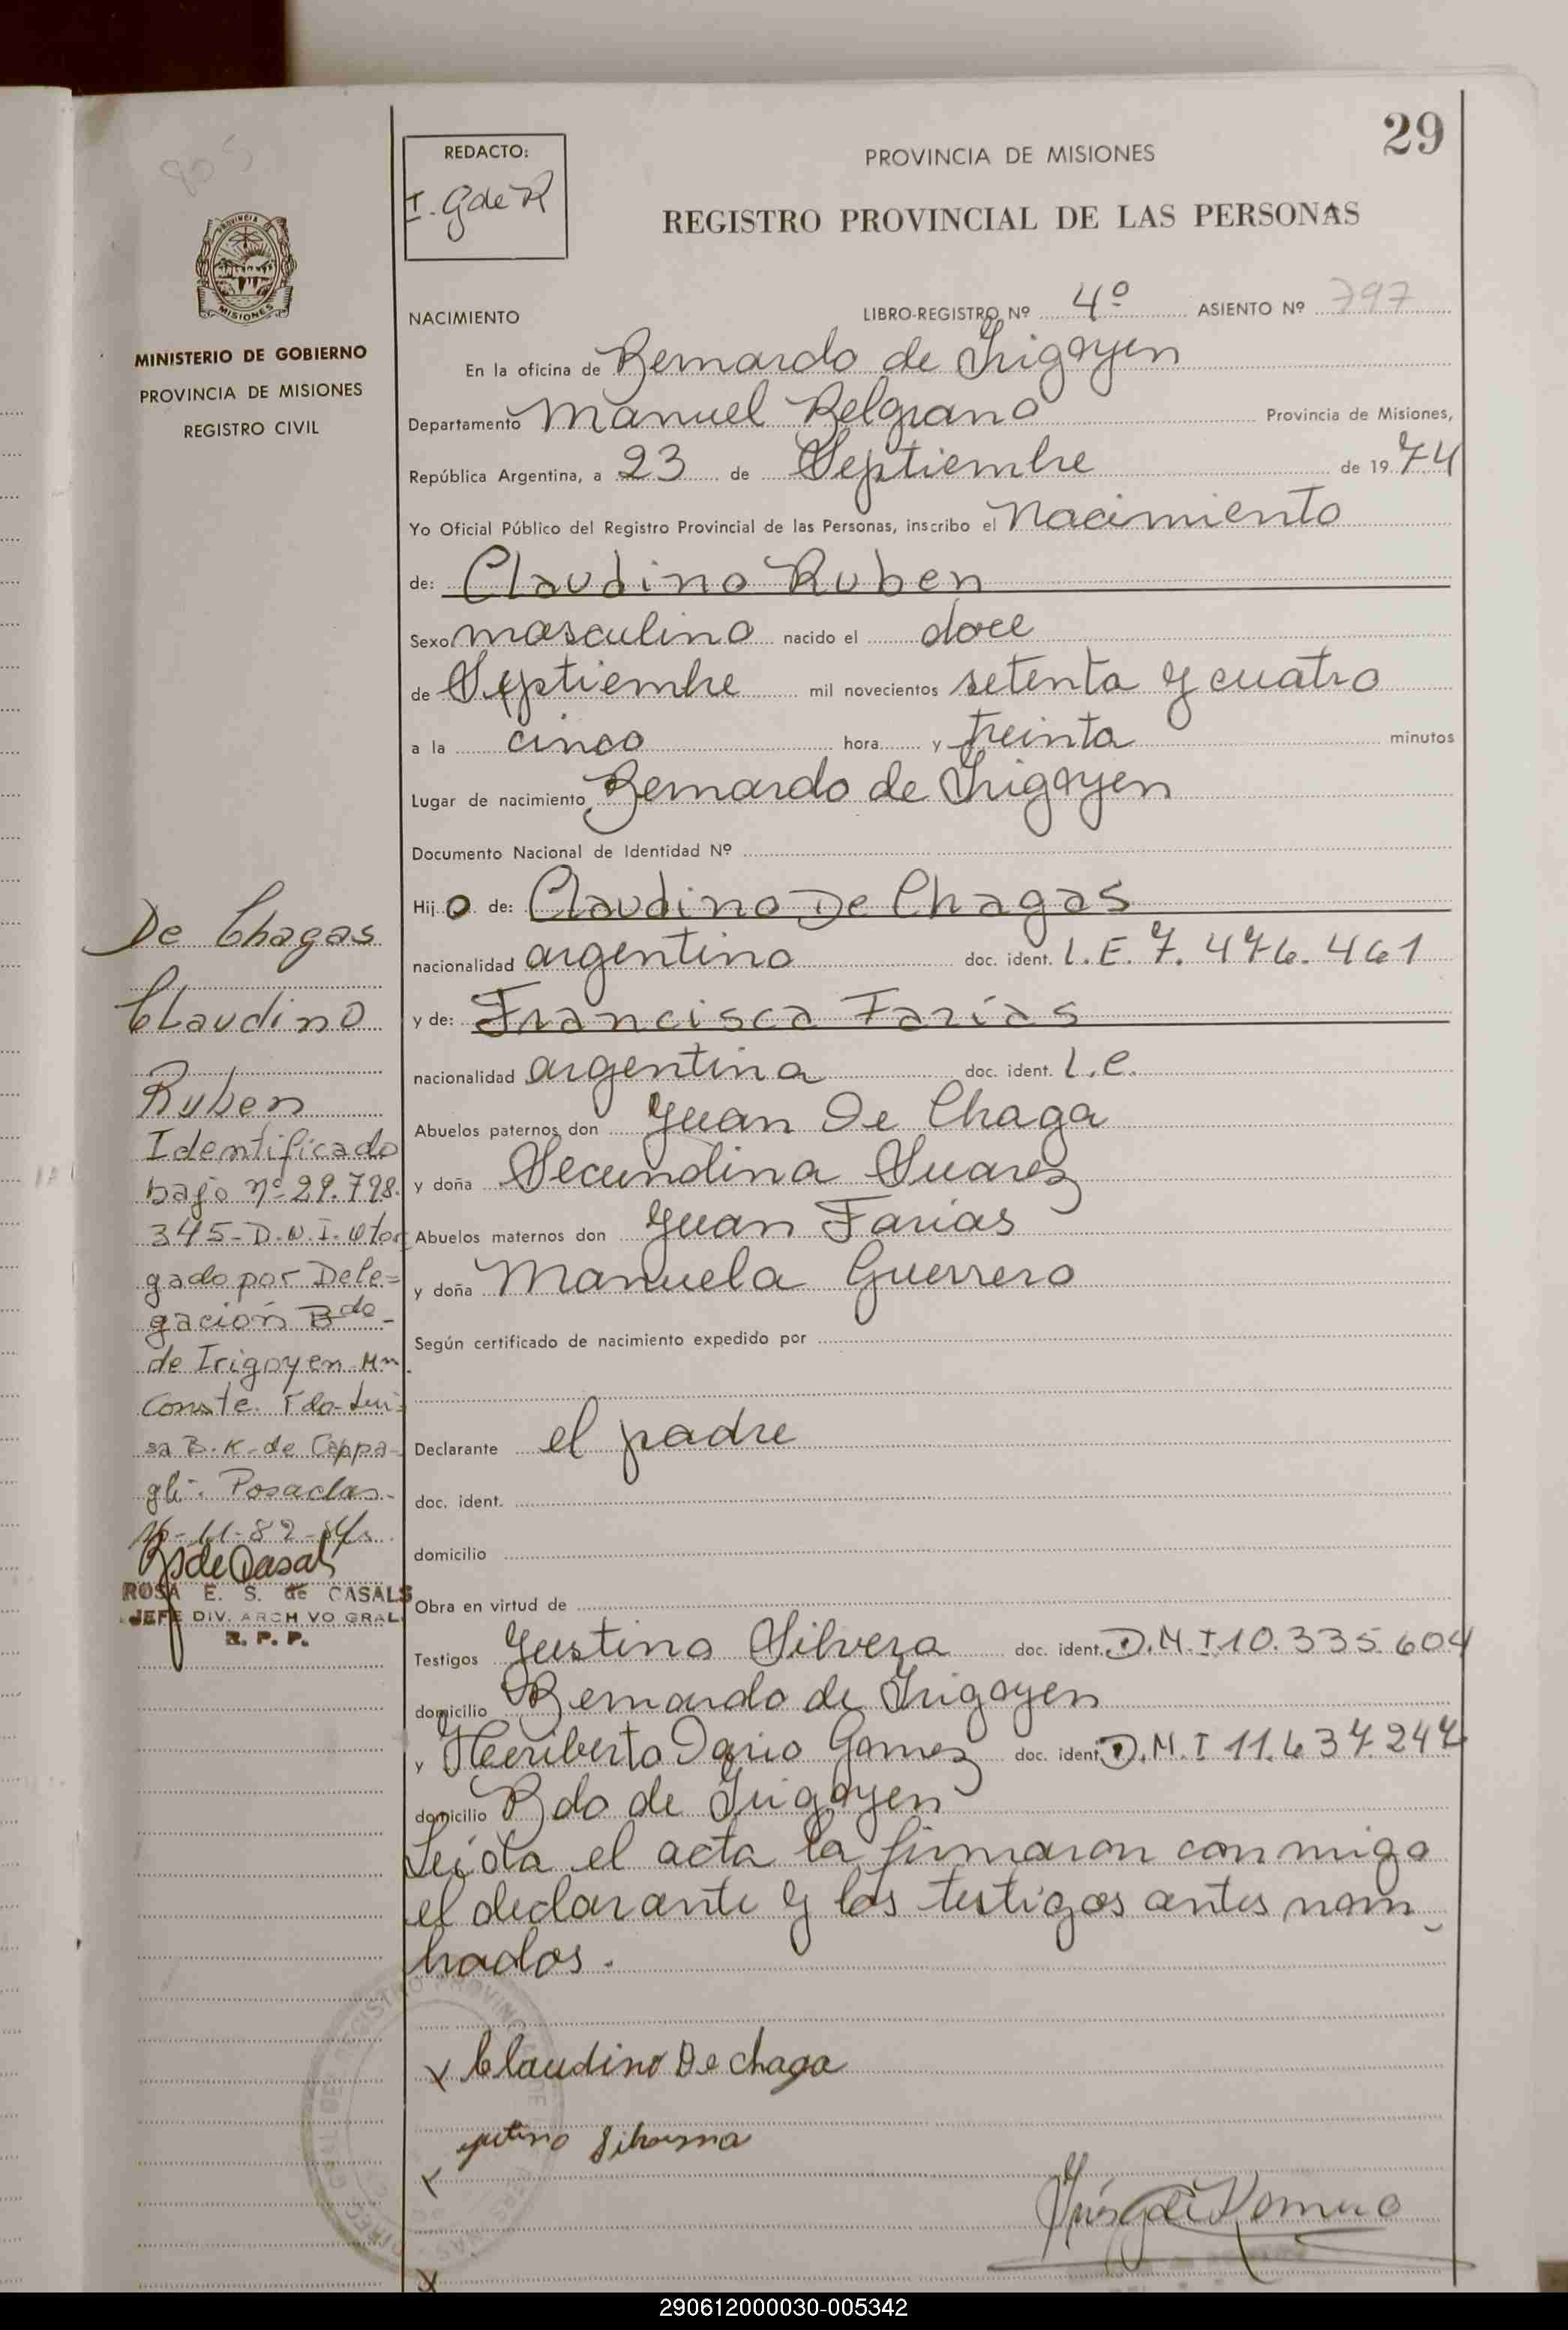 29
REDACTO:
I. G de R
PROVINCIA DE MISIONES
REGISTRO PROVINCIAL DE LAS PERSONAS
PROVINCIA
MISIONES
MINISTERIO DE GOBIERNO
PROVINCIA DE MISIONES
REGISTRO CIVIL
NACIMIENTO LIBRO-REGISTRO Nº 4º ASIENTO Nº 797
En la oficina de Bernardo de Irigoyen
Departamento Manuel Belgrano Provincia de Misiones,
República Argentina, a 23 de Septiembre de 1974
Yo Oficial Público del Registro Provincial de las Personas, inscribo el Nacimiento
de: Claudino Ruben
Sexo masculino nacido el doce
de Septiembre mil novecientos setenta y cuatro
a la cinco hora y treinta minutos
Lugar de nacimiento Bernardo de Irigoyen
Documento Nacional de Identidad Nº
Hijo de: Claudino De Chagas
nacionalidad argentino doc. ident. L.E. 7.476.461
y de: Francisca Farías
nacionalidad argentina doc. ident. L.C.
Abuelos paternos don Juan De Chaga
y doña Secundina Suarez
Abuelos maternos don Juan Farias
y doña Manuela Guerrero
Según certificado de nacimiento expedido por
Declarante el padre
doc. ident.
domicilio
Obra en virtud de
Testigos Justino Silvera doc. ident. D.N.I 10.335.604
domicilio Bernardo de Irigoyen
y Heriberto Dario Gomez doc. ident. D.N.I 11.637.247
domicilio Bdo de Irigoyen
Leída el acta la firmaron conmigo
el declarante y los testigos antes nom
brados.
x Claudino De chaga
De Chagas
Claudino
Ruben
Identificado
bajo nº 29.798.
345- D.N.I. otor
gado por Dele=
gación Bdo-
de Irigoyen Mn.
Conste. Fdo- Lui=
sa B. K. de Cappa-
gli-. Posadas-
R S de Casals
ROSA E. S. de CASALS
JEFE DIV. ARCHIVO GRAL.
R. P. P.
290612000030-005342